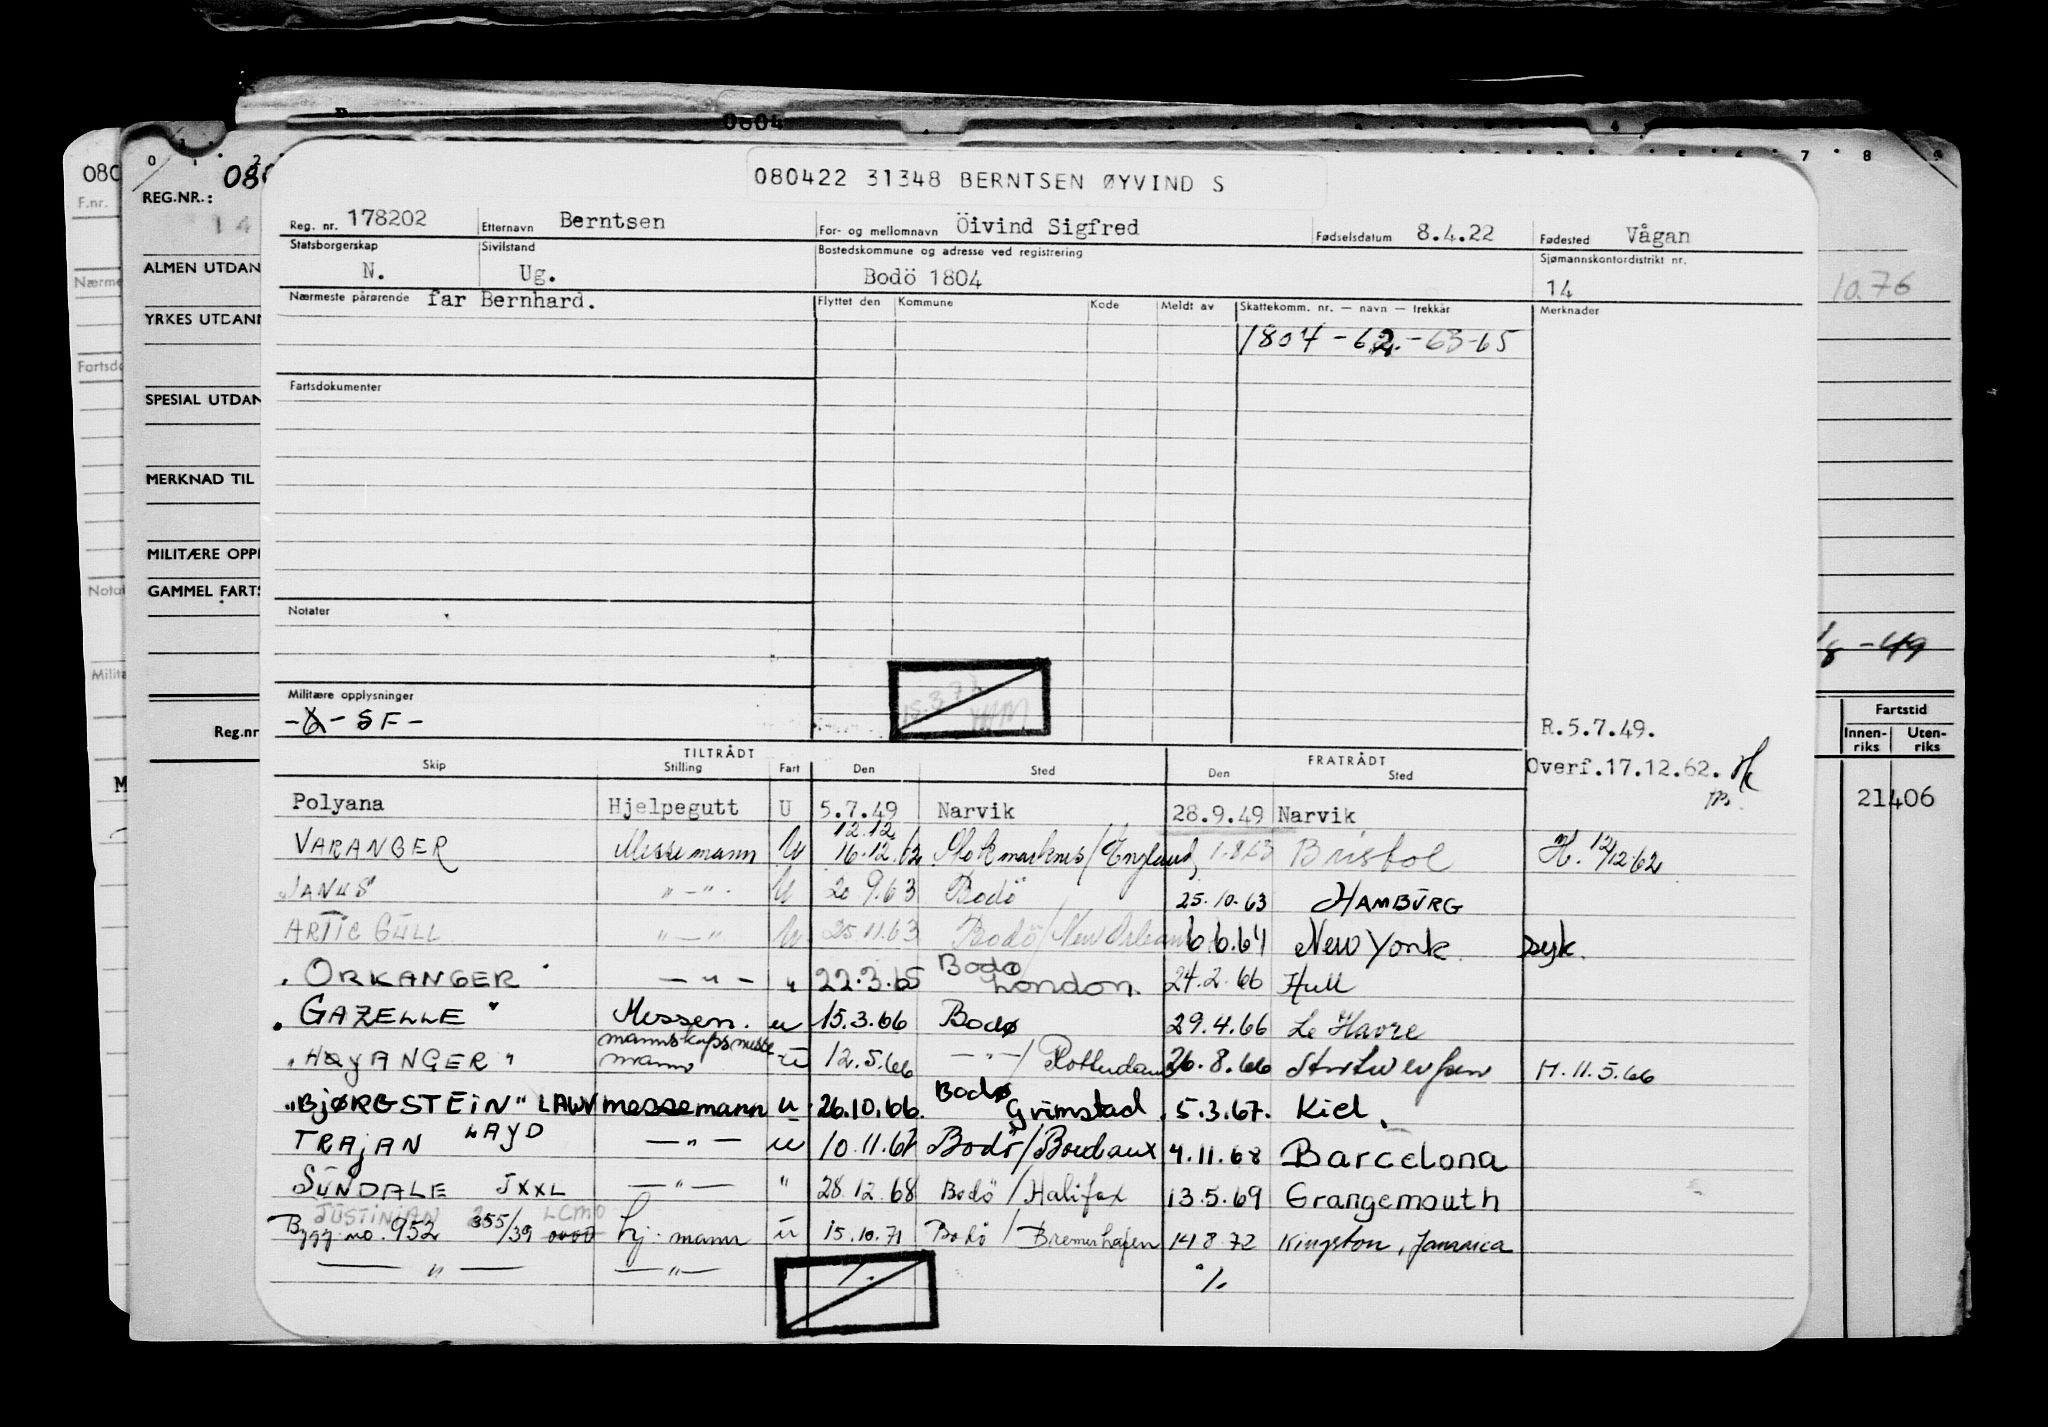 0804
080422 31348 BERNTSEN ØYVIND S
Reg. nr. 178202 Etternavn Berntsen For- og mellomnavn Öivind Sigfred Fødselsdatum 8.4.22 Fødested Vågan
Statsborgerskap N. Sivilstand Ug. Bostedskommune og adresse ved registrering Bodö 1804 Sjømannskontordistrikt nr. 14
Nærmeste pårørende far Bernhard. Flyttet den Kommune Kode Meldt av Skattekomm. nr. — navn — trekkår Merknader
1804 - 62. - 63-65
Fartsdokumenter
Notater
Militære opplysninger
- SF -
R.5.7.49.
Overf.17.12.62.
TILTRÅDT FRATRÅDT
Skip Stilling Fart Den Sted Den Sted
Polyana Hjelpegutt U 5.7.49 Narvik 28.9.49 Narvik
12.12
VARANGER Messemann U 16.12.62 Stokmarknes/England 1.8.63 Bristol H. 12/12-62
JANUS " - " - U 20 9.63 Bodö 25.10.63 HAMBURG
ARTIC GULL " — " U 25.11.63 Bodö/New Orleans 6.6.64 New York Syk.
"ORKANGER" — " — " 22.3.65 Bodø London. 24.2.66 Hull
"GAZELLE" Messem. u 15.3.66 Bodø 29.4.66 Le Havre
"HØYANGER" mannskapsmessemann u 12.5.66 — " — / Rotterdam 26.8.66 Antwerpen H. 11.5.66
"BJØRGSTEIN" LAWV messemann u 26.10.66. Bodø Grimstad 5.3.67. Kiel.
TRAJAN LAJD — " — u 10.11.67 Bodö/Bordeaux 4.11.68 Barcelona
SUNDALE JXXL — " — " 28.12.68 Bodö / Halifax 13.5.69 Grangemouth
JUSTINIAN LCMO
Bygg. no. 952 355/39 hj. mann u 15.10.71 Bodö / Bremerhafen 14 8 72 Kingston, Jamaica
— " — — " — %
REG.NR.:
ALMEN UTDAN
YRKES UTDANN
SPESIAL UTDAN
MERKNAD TIL
MILITÆRE OPPL
GAMMEL FARTS
Reg.nr
F.nr.
Nærme
Fartsdo
Notat
Milita
10.76
Fartstid
Innen-riks Uten-riks
21406